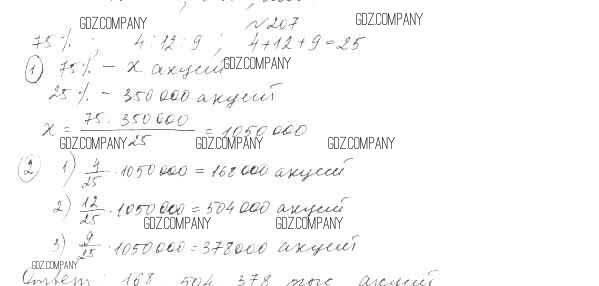 GDZ.COMPANY №207 GDZ.COMPANY
75% ; 4:12:9 ; 4+12+9=25
1 75% – x акций GDZ.COMPANY
25% – 350000 акций
x = 75 · 350000 / 25 = 1050000
GDZ.COMPANY GDZ.COMPANY GDZ.COMPANY
2 1) 4/25 · 1050000 = 168000 акций
2) 12/25 · 1050000 = 504000 акций
GDZ.COMPANY GDZ.COMPANY
3) 9/25 · 1050000 = 378000 акций
GDZ.COMPANY
Ответ: 168, 504, 378 тыс. акций